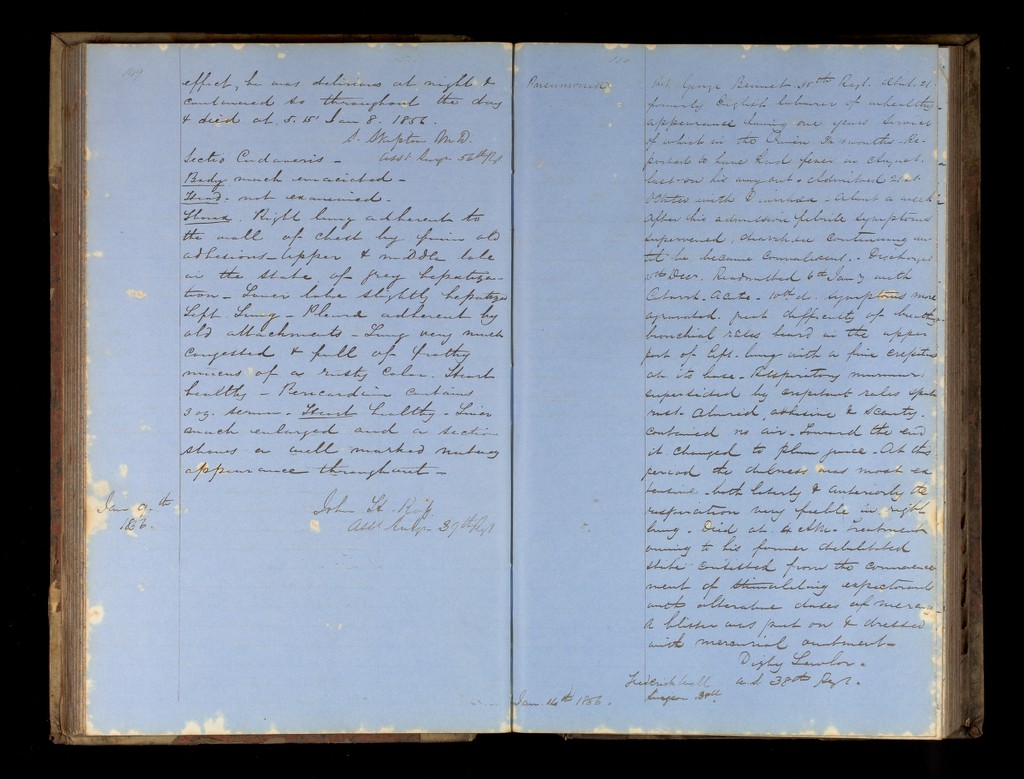 effect, he was delirious at night &
continued so throughout the day
& died at 5.15 Jan 8. 1856.
S. Skipton M.D.
Asst Surgn 56th Rgt
Sectio Cadaveris -
Body much emaciated -
Head - not examined -
Right lung adherent to
the wall of chest by firm old
adhesions - upper & middle lobe
in the state of grey hepatiza-
tion - Lower lobe slightly hepatized
Left Lung - Pleura adherent by
old attachments - Lung very much
congested & full of frothy
mucus of a rusty color. Heart
healthy - Pericardium contains
3 oz. serum - Heart healthy - Liver
much enlarged and a section
shows a well marked nutmeg
appearance throughout -
Jan 9th
1856.
John H.
Asst Surgn 39th Rgt
Pneumonia
George Bennet Regt. Ætat. 21
formerly English laborer of unhealthy
appearance having one years service
of which in the Crimea months. Re-
ported to have had fever in August
last on his way out. Admitted 21st
October with Diarrhoea. About a week
after his admission febrile symptoms
supervened, diarrhoea continuing un-
til he became convalescent. - Discharged
Decr. Readmitted 6th Jany with
Catarrh. Acute - 10th d. symptoms more
agravated. great difficulty of breathing
bronchial rales heard in the upper
part of left lung with a fine crepitus
at its base - Respiratory murmur
superseded by crepitant rales sputa
rust colored, adhesive & scanty.
contained no air - Toward the end
it changed to plum juice - At this
period the dulness was most ex-
tensive both laterly & anteriorly the
respiration very feeble in right
lung. Died at 4 A.M. Treatment
owing to his former debilitated
state consisted from the commence-
ment of stimulating expectorants
with alterative doses of mercury
A blister was put on & dressed
with mercurial ointment -
Digby Lawlor -
a.s. 38th Regt.
Frederick Hall
Surgeon 38th
Jan. 14th 1856.